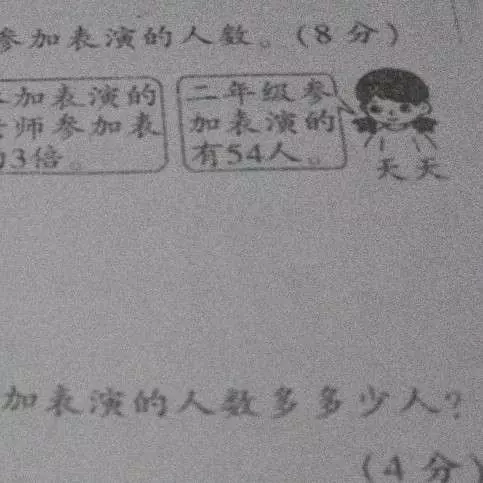 参加表演的人数。(8分)
加表演的
师参加表
3倍。
二年级参
加表演的
有54人。
天天
加表演的人数多多少人?
(4分)